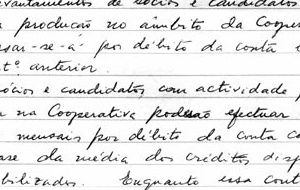 levantamentos de sócios e candidatos
a produção no âmbito da Coope
sar-se-á por débito da conta
tº anterior.
ócios e candidatos com actividade
na Cooperativa poderão efectuar
mensais por débito da conta
ase da média dos créditos disp
bilizados. Enquanto essa cont